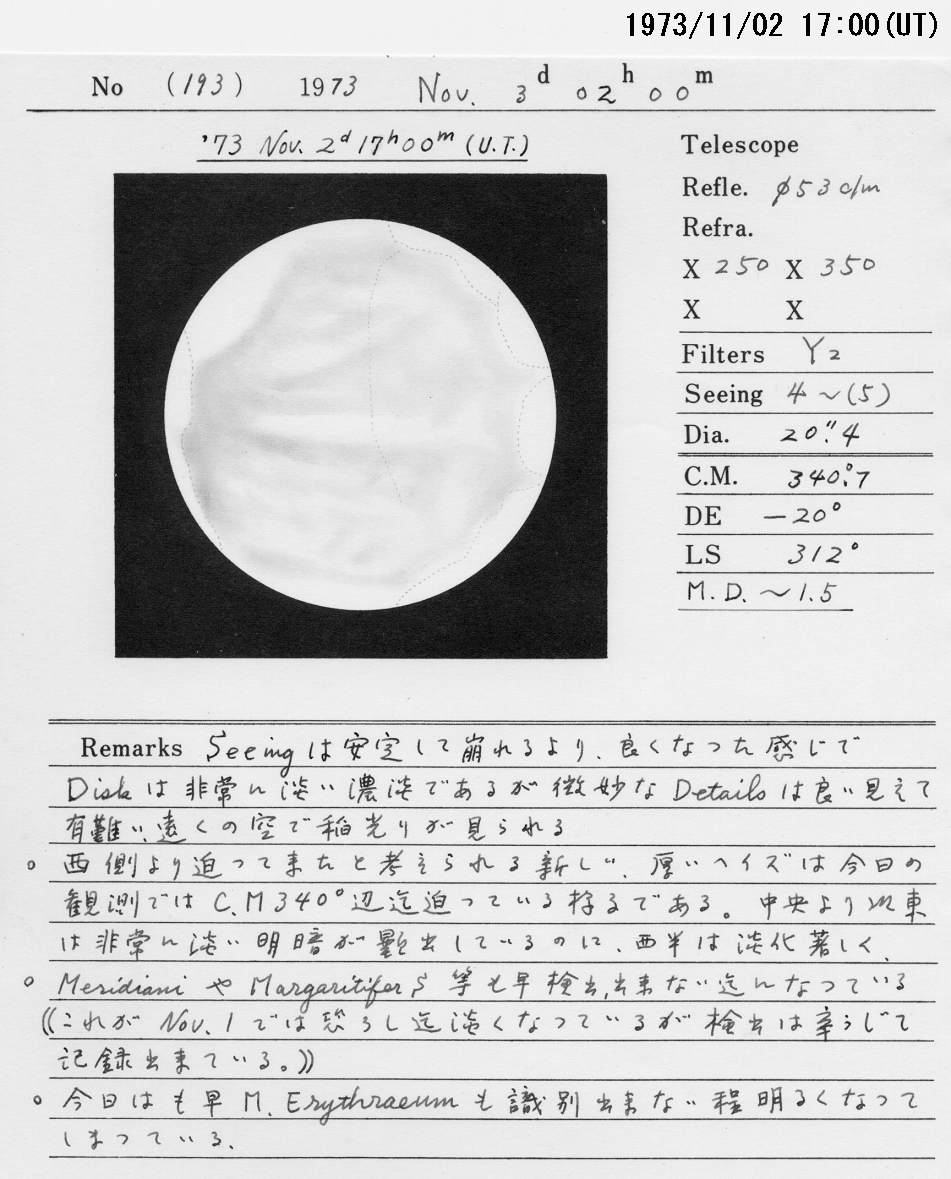 1973/11/02 17:00(UT)
No (193) 1973 Nov. 3d 02h 00m
'73 Nov. 2d 17h00m (U.T.)
Telescope
Refle. φ53 c/m
Refra.
X 250 X 350
X X
Filters Y2
Seeing 4~(5)
Dia. 20".4
C.M. 340°.7
DE -20°
LS 312°
M.D. ~1.5
Remarks Seeingは安定して崩れるより、良くなった感じで
Diskは非常に淡い濃淡であるが微妙なDetailsは良い見えて
有難い、遠くの空で稲光りが見られる
○ 西側より迫って来たと考えられる新しい、厚いヘイズは今日の
観測では C.M 340°辺迄迫っている様るである。中央より以東
は非常に淡い明暗が顕出しているのに、西半は淡化著しく、
○ Meridiani や Margaritifer S 等も早検出、出来ない迄になっている
((これが Nov. 1 では恐ろし迄淡くなっているが検出は辛うじて
記録出来ている。))
○ 今日はも早 M. Erythraeum も識別出来ない程明るくなって
しまっている.